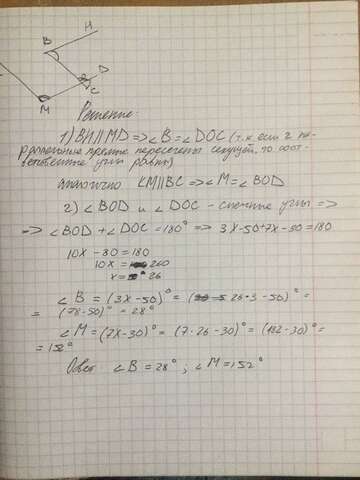 B H
O D
C
M
Решение:
1) BH || MD => ∠B = ∠DOC (т.к. если 2 па-
раллельные прямые пересечены секущей, то соот-
ветственные углы равны)
Аналогично KM || BC => ∠M = ∠BOD
2) ∠BOD и ∠DOC - смежные углы =>
=> ∠BOD + ∠DOC = 180° => 3x-50+7x-30=180
10x - 80 = 180
10x = 260
x = 26
∠B = (3x-50)° = (26·3-50)° =
= (78-50)° = 28°
∠M = (7x-30)° = (7·26-30)° = (182-30)° =
= 152°
Ответ ∠B = 28° ; ∠M = 152°